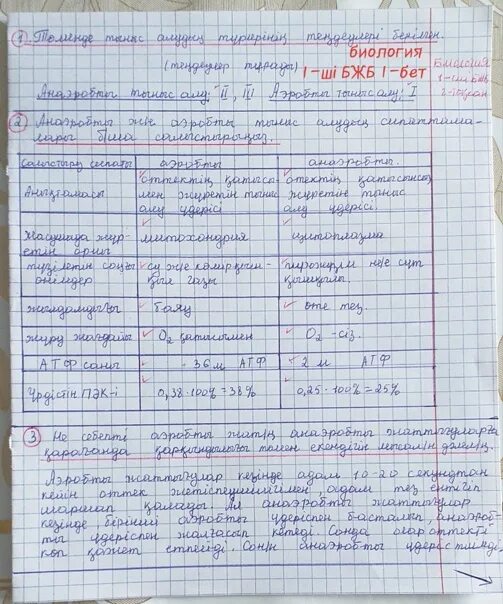 1. Төменде тыныс алудың түрлерінің теңдеулері берілген.
(теңдеулер тұрады)
биология
1-ші БЖБ 1-бет
Биология
1-ші БЖБ
2-тоқсан
Анаэробты тыныс алу: II, III Аэробты тыныс алу: I
2. Анаэробты және аэробты тыныс алудың сипаттама-
лары б-ша салыстырыңыз.
Салыстыру сипаты аэробты анаэробты.
Анықтамасы оттектің қатысы- мен жүретін тыныс алу үдерісі отектің қатысынсыз жүретін тыныс алу үдерісі.
Жасушада жүр- етін орны митохондрия цитоплазма
түзілетін соңғы өнімдер су және көмірқыш- қыл газы пирожүзім н/е сүт қышқылы
жылдамдығы баяу өте тез.
жүру жағдайы O₂ қатысымен O₂ -сіз.
АТФ саны - 36 м АТФ 2 м АТФ
Үрдістің ПӘК-і 0,38·100%=38% 0,25·100%=25%
3. Не себепті аэробты жаттығу анаэробты жаттығуларға
қарағанда қарқындылығы төмен екендігін мысалмен дәлелдең.
Аэробты жаттығулар кезінде адам 10-20 секундтан
кейін оттек жетіспеушілігімен, адам тез ентігіп
шаршап қалады. Ал анаэробты жаттығулар
кезінде бірінші аэробты үдеріспен басталып, анаэроб-
ты үдеріспен жалғасып кетеді. Сонда олар оттекті
көп қажет етпейді. Соның анаэробты үдеріс тиімді.